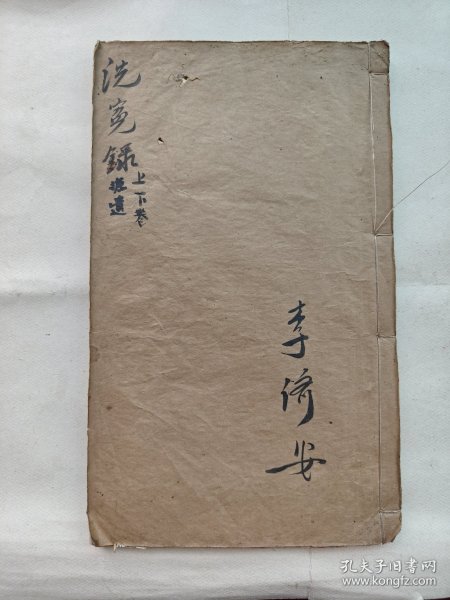 洗寃錄
上下卷
摭遺
李侪安
孔夫子旧书网
www.kongfz.com